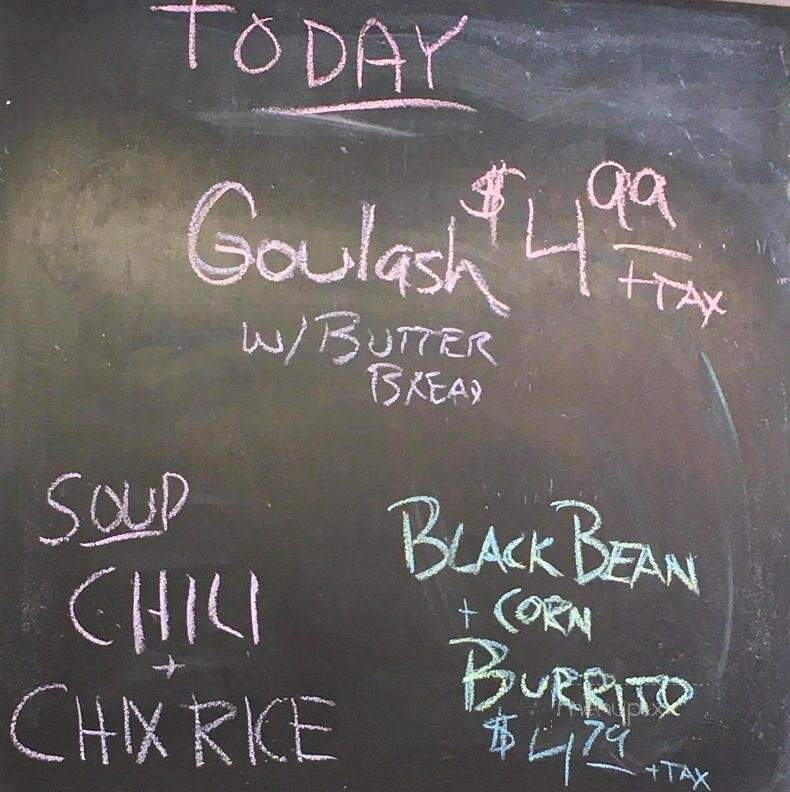 TODAY
Goulash $4.99
+TAX
W/ BUTTER
BREAD
SOUP
CHILI
+
CHIX RICE
BLACK BEAN
+ CORN
BURRITO
$4.79
+TAX
menupix